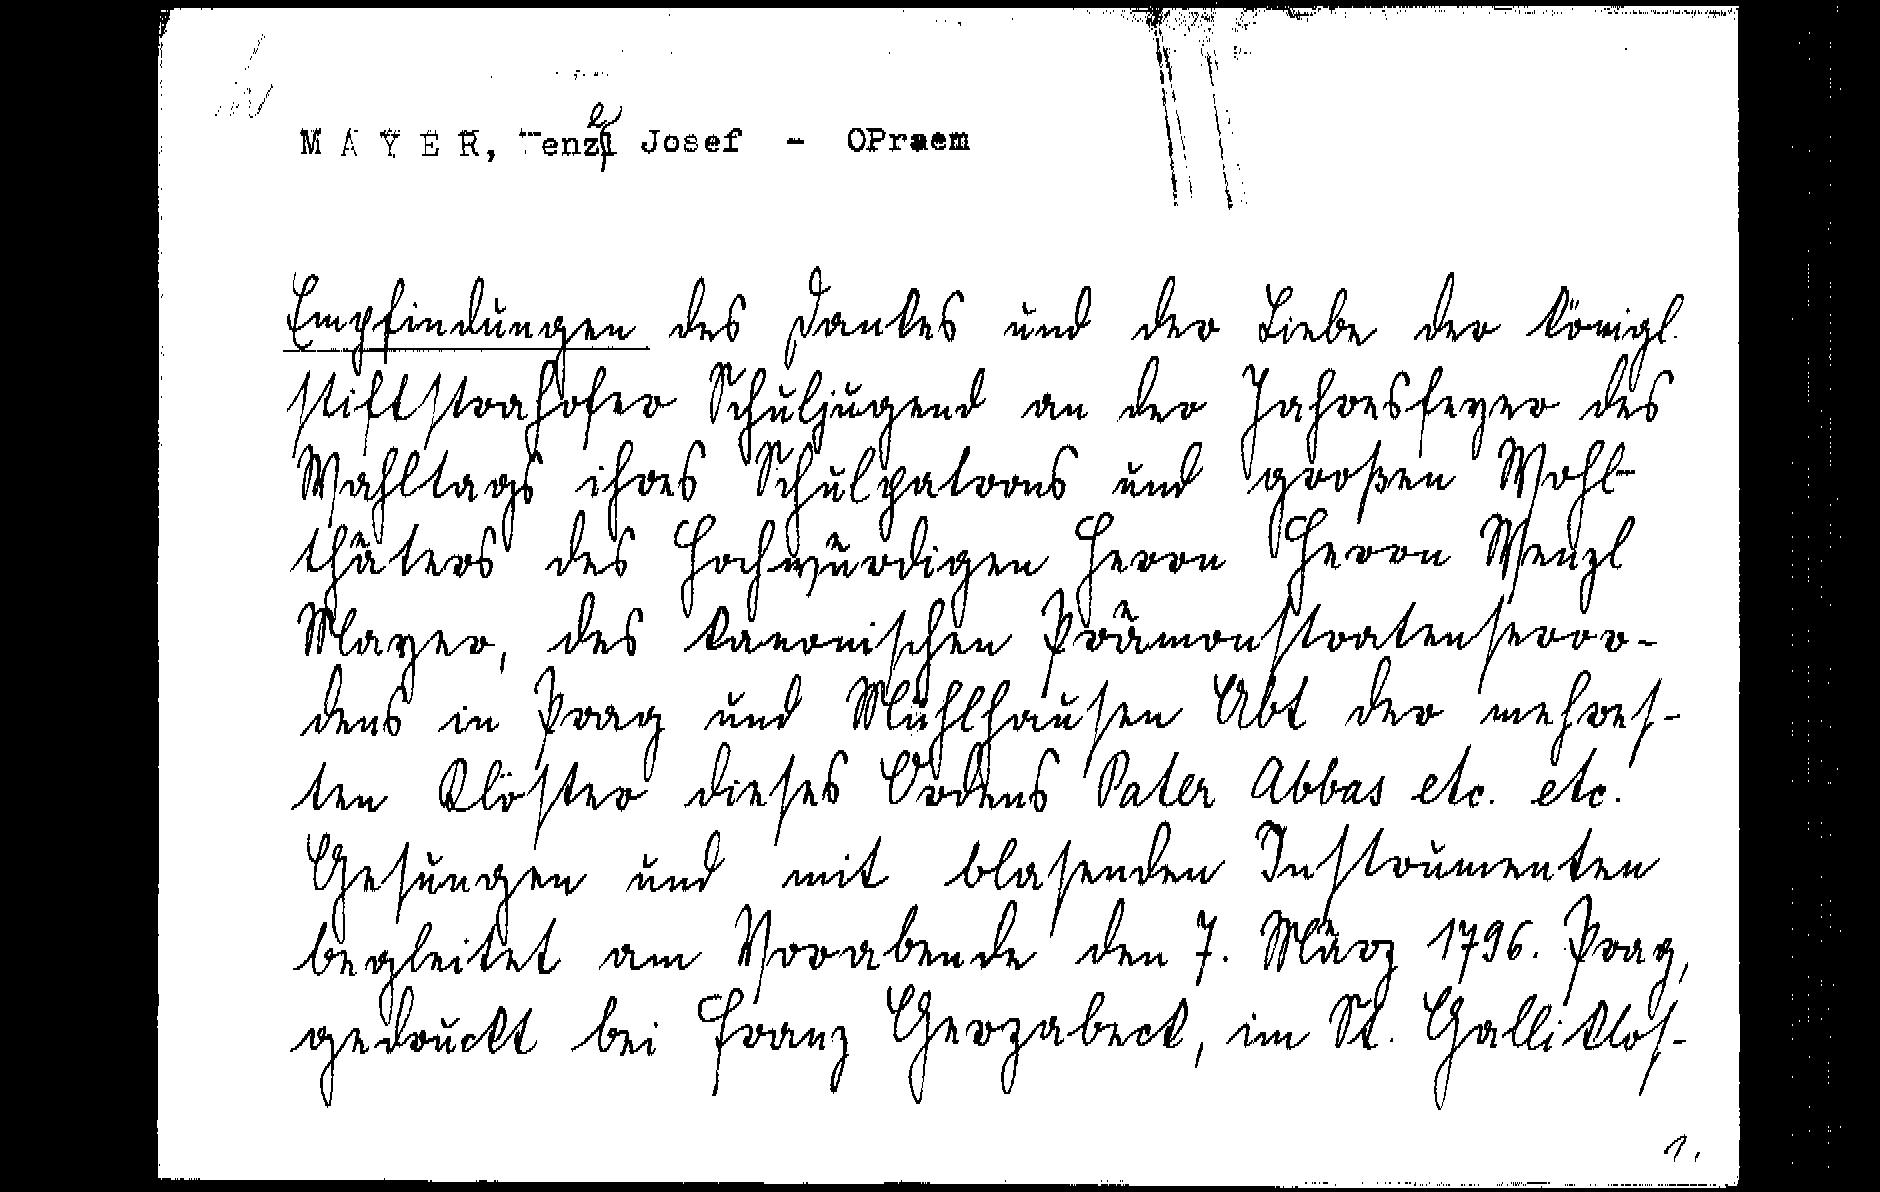 MAYER, Wenzel Josef - OPraem
Empfindungen des Dankes und der Liebe der königl.
stiftstrahofer Schuljugend an der Jahresfeyer des
Wahltags ihres Schulpatrons und großen Wohl-
thäters des Hochwürdigen Herrn Herrn Wenzl
Mayer, des kanonischen Prämonstratenseror-
dens in Prag und Mühlhausen Abt der mehres-
ten Klöster dieses Ordens Pater Abbas etc. etc.
Gesungen und mit blasenden Instrumenten
begleitet am Vorabende den 7. März 1796. Prag,
gedruckt bei Franz Gerzabeck, im St. Galliklos-
1.